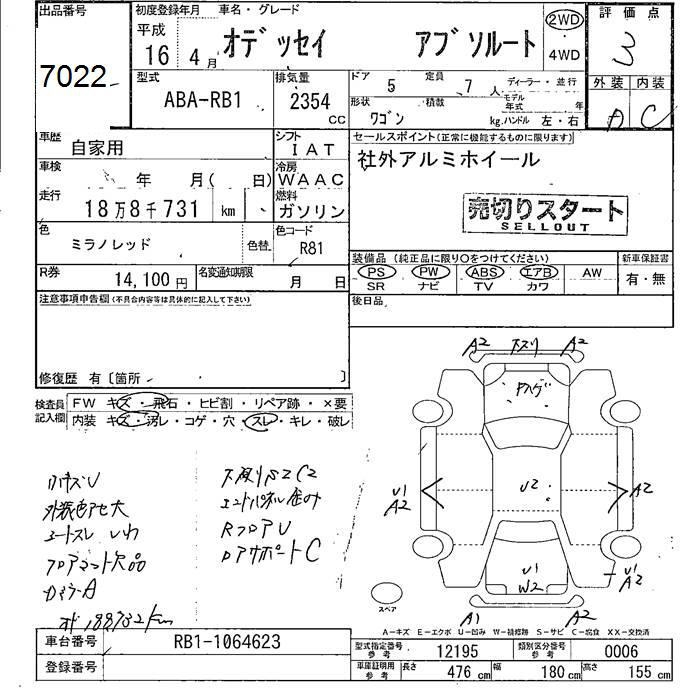 出品番号 初度登録年月 車名・グレード 2WD 評価点
平成
16 4月 オデッセイ アブソルート 4WD 3
7022 型式 排気量 ドア 5 定員 7人 ディーラー・並行 外装 内装
ABA-RB1 2354 cc 形状 ワゴン 積載 kg モデル年式 年 ハンドル 左・右 A C
車歴 自家用 シフト IAT セールスポイント(正常に機能するものに限ります)
車検 年 月( 日) 冷房 WAAC 社外アルミホイール
走行 18万8千731 km 燃料 ガソリン 売切りスタート
SELLOUT
色 ミラノレッド 色替 色コード R81
装備品 (純正品に限り○をつけてください) 新車保証書
R券 14,100円 名変通知期限 月 日 PS PW ABS エアB AW 有・無
SR ナビ TV カワ
注意事項申告欄(不具合内容等は具体的に記入して下さい) 後日品
修復歴 有〔箇所 〕
検査員 FW キズ・飛石・ヒビ割・リペア跡・×要
記入欄 内装 キズ・汚レ・コゲ・穴・スレ・キレ・破レ
A2 下スリ A2
Fハゲ
U1 A2 U2 A2
U1 A2
U1
W2
A1 A2
スペア
外装色アセ大
シートスレ いわ
フロアマット欠品
エンドパネル歪み
RフロアU
DアサポートC
オド188732km
A-キズ E-エクボ U-凹み W-補修跡 S-サビ C-腐食 XX-交換済
車台番号 RB1-1064623 型式指定番号 参考 12195 類別区分番号 参考 0006
登録番号 車庫証明用 参考 長さ 476 cm 幅 180 cm 高さ 155 cm